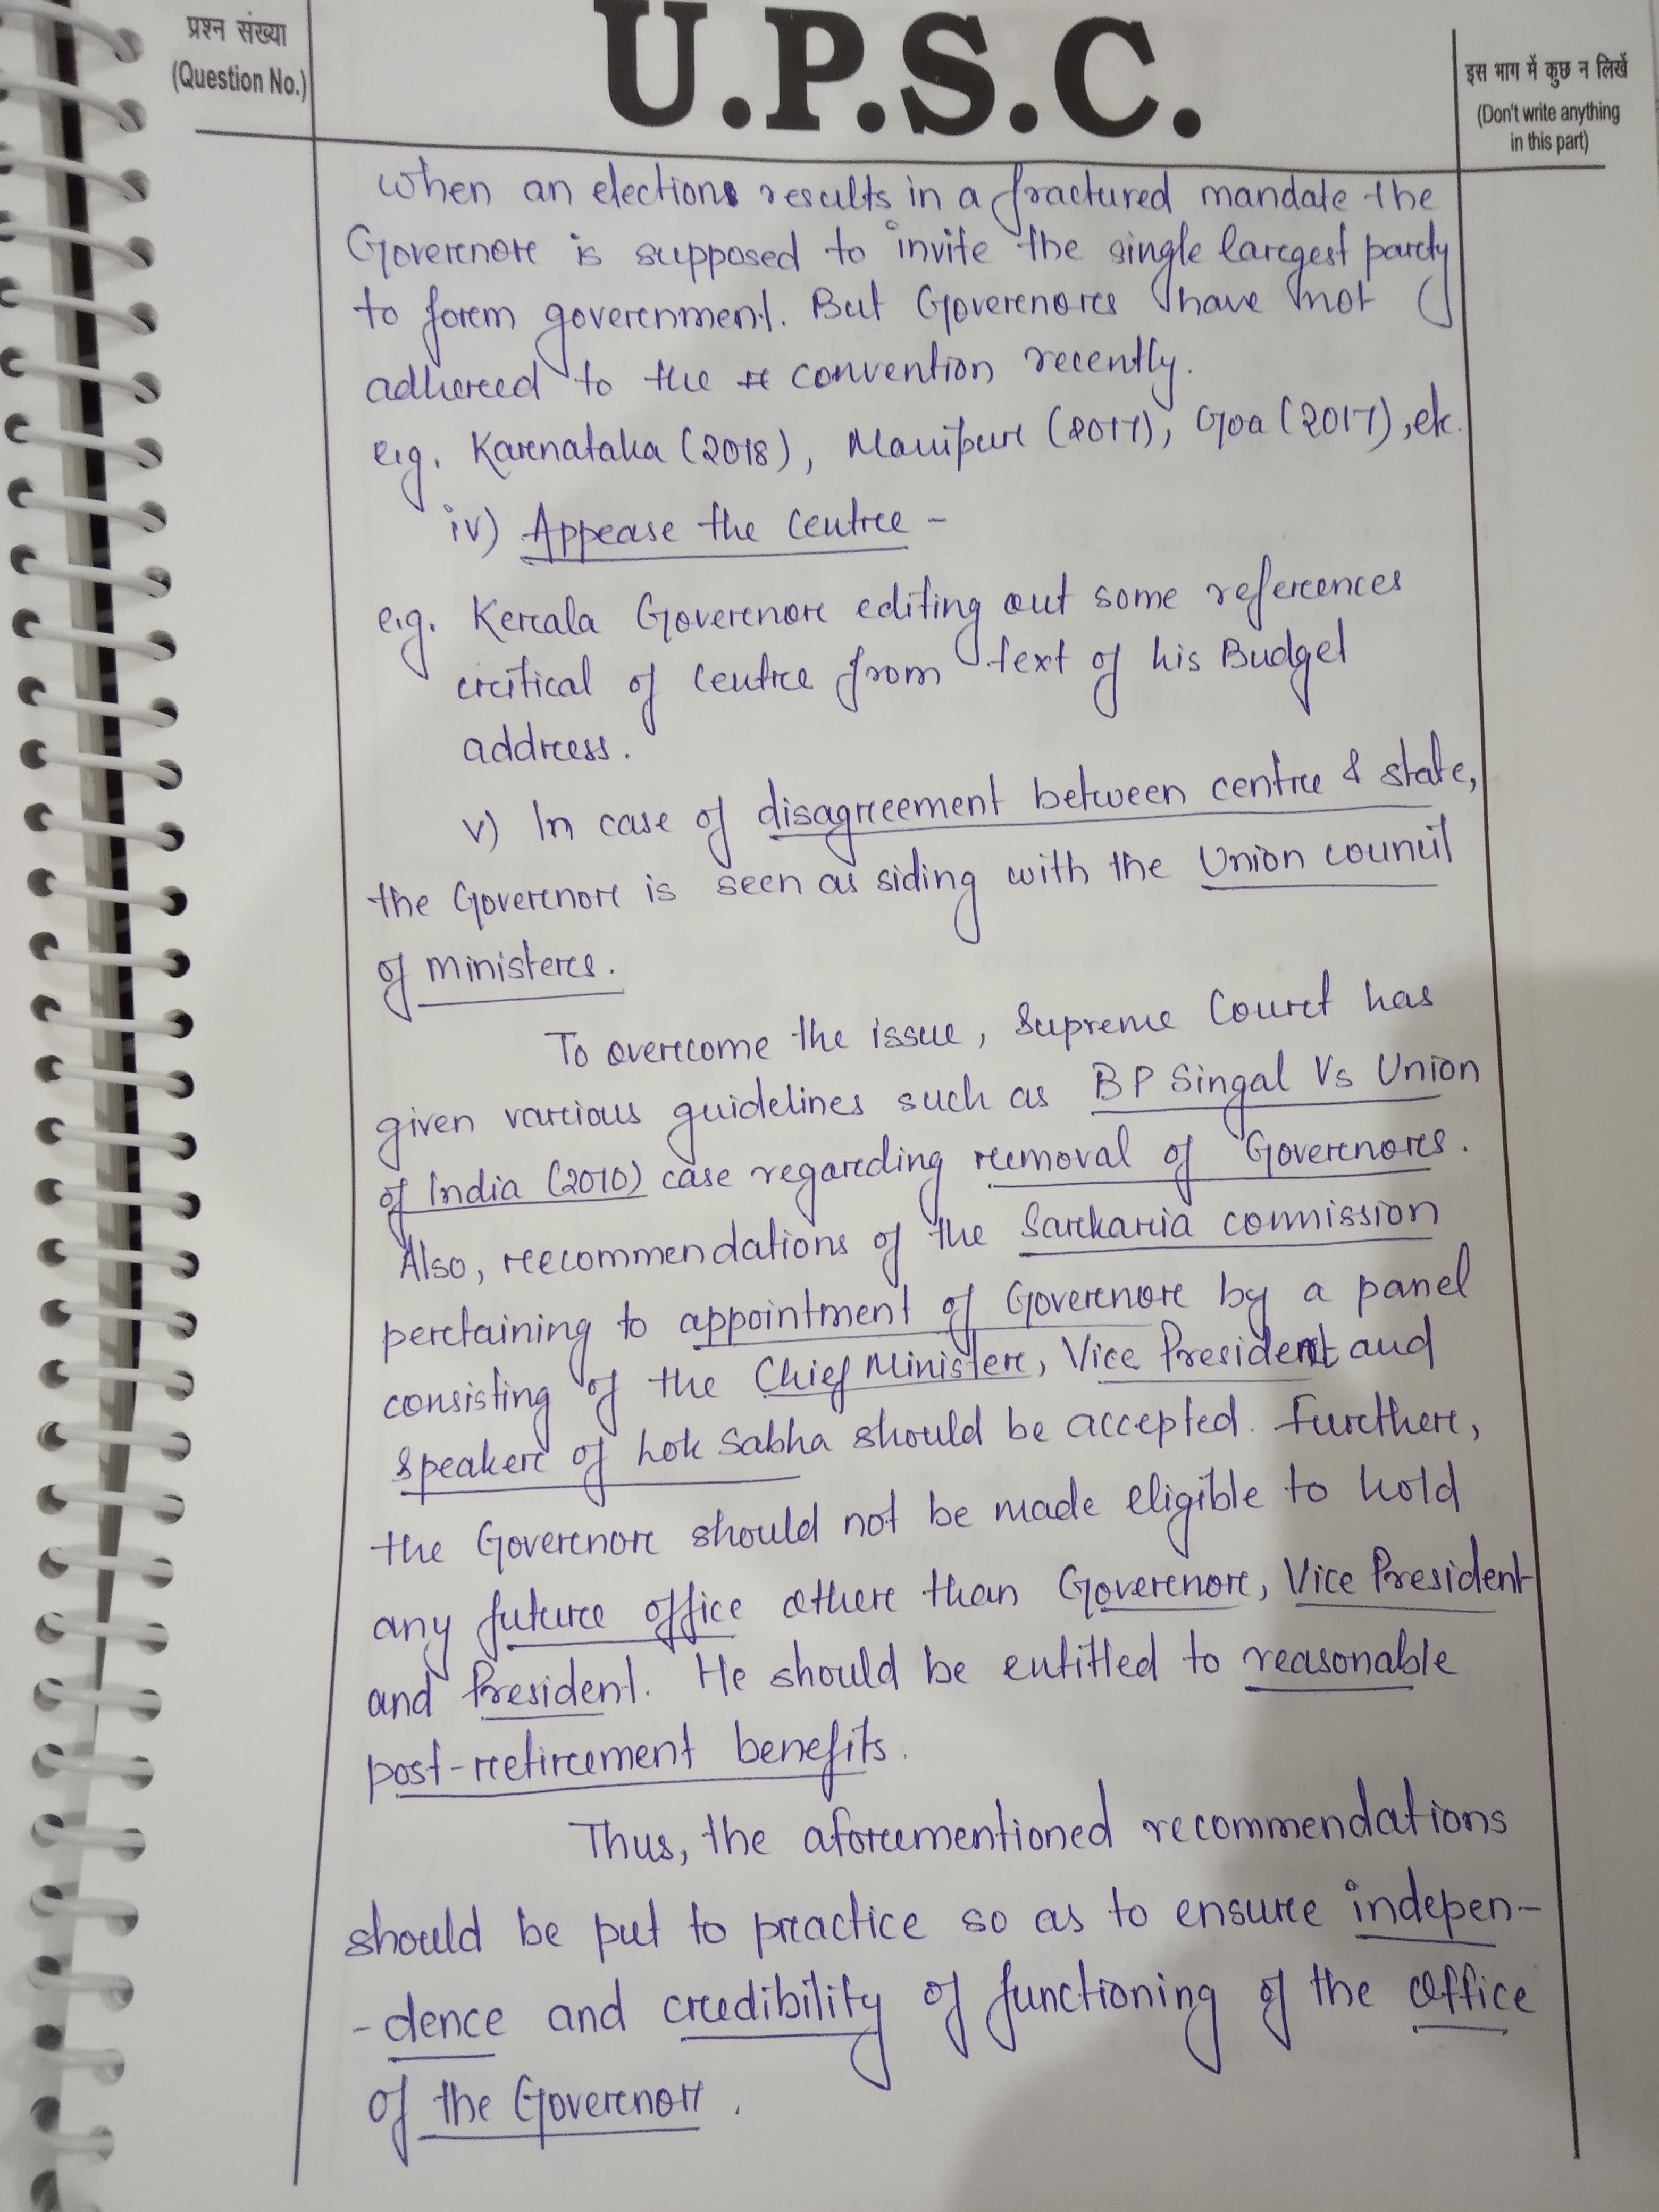 प्रश्न संख्या
(Question No.)
U.P.S.C.
इस भाग में कुछ न लिखें
(Don't write anything
in this part)
When an elections results in a fractured mandate the
Governor is supposed to invite the single largest party
to form government. But Governors have not
adhered to the convention recently.
e.g. Karnataka (2018), Manipur (2017), Goa (2017), etc.
iv) Appease the Centre -
e.g. Kerala Governor editing out some references
critical of Centre from text of his Budget
address.
v) In case of disagreement between centre & state,
the Governor is seen as siding with the Union council
of ministers.
To overcome the issue, Supreme Court has
given various guidelines such as BP Singal Vs Union
of India (2010) case regarding removal of Governors.
Also, recommendations of the Sarkaria commission
pertaining to appointment of Governor by a panel
consisting of the Chief Minister, Vice President and
speaker of Lok Sabha should be accepted. Further,
the Governor should not be made eligible to hold
any future office other than Governor, Vice President
and President. He should be entitled to reasonable
post-retirement benefits.
Thus, the aforementioned recommendations
should be put to practice so as to ensure indepen-
-dence and credibility of functioning of the Office
of the Governor.